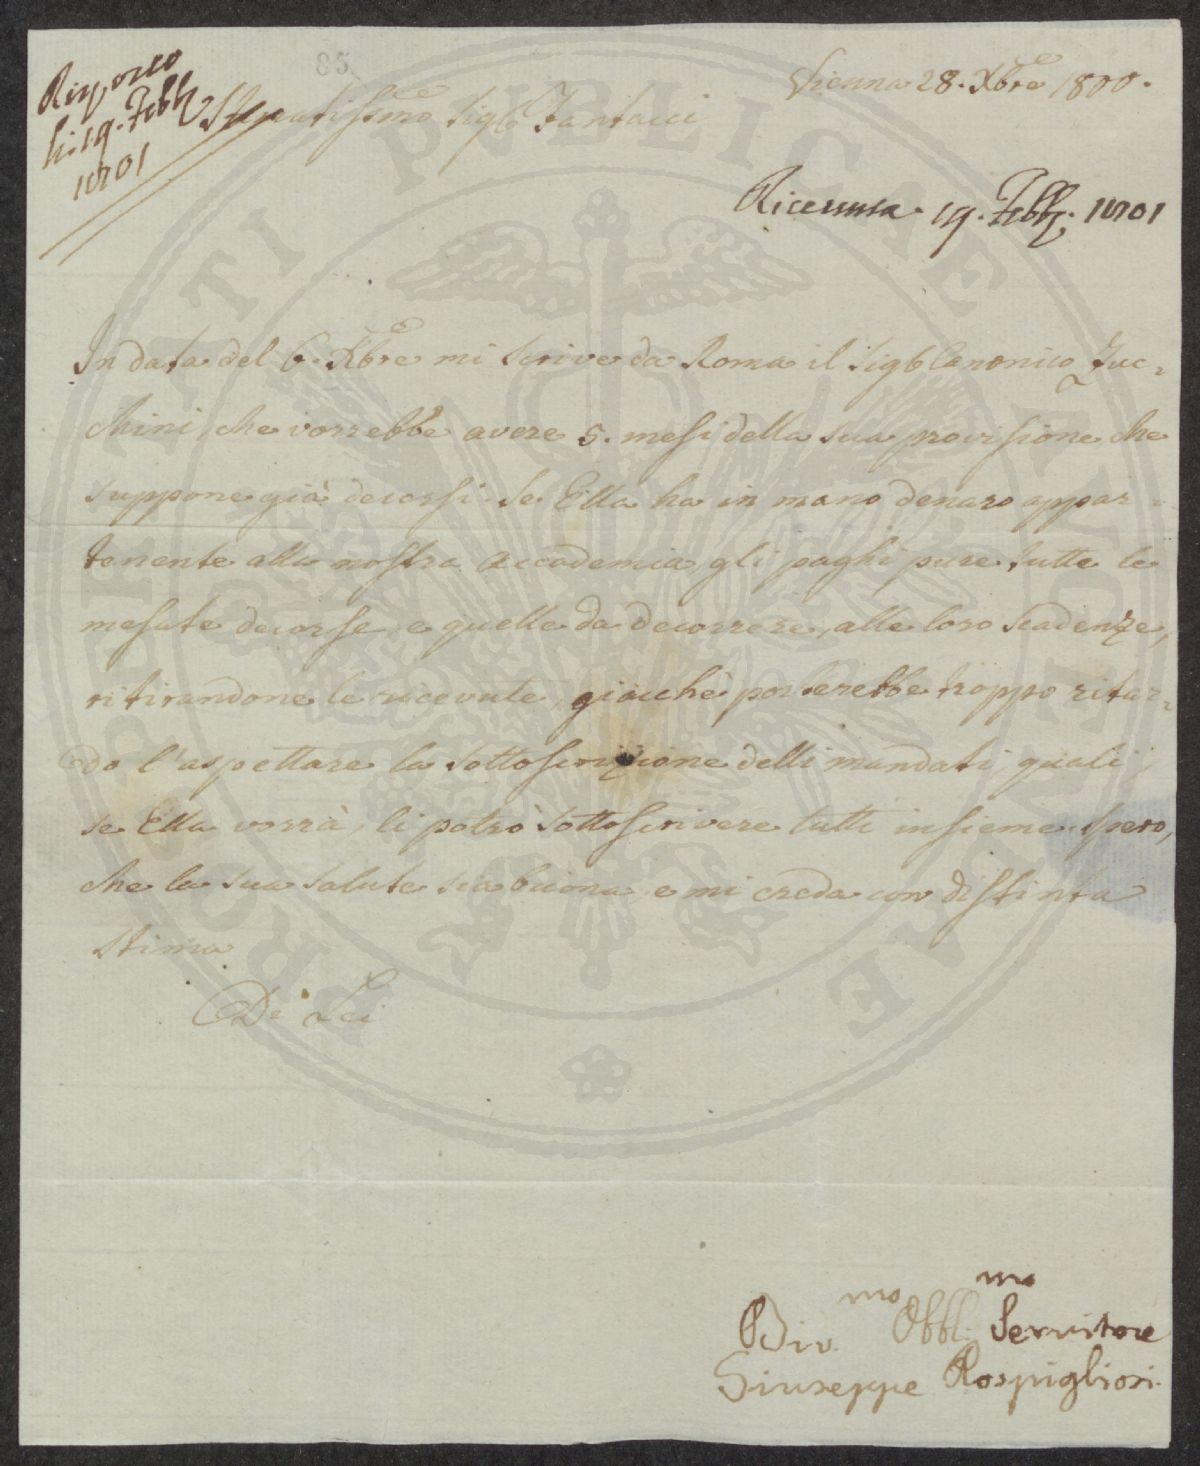 85.
Vienna 28. Xbre 1800.
Risposto
li 19. Febb.
1801
Stimatissmo Sigr. Fantacci
Ricevuta 19. Febb. 1801
In data del 6. Xbre mi scrive da Roma il Sigr Canonico Zuc=
chini, che vorrebbe avere 5. mesi della sua provisione che
suppone già decorsi. Se Ella ha in mano denaro appar=
tenente alla nostra Accademia, gli paghi pure tutte le
mesate decorse, e quelle da decorrere, alle loro scadenze,
ritirandone le ricevute, giacchè porterebbe troppo ritar=
do l'aspettare la sottoscrizione delli mandati, quali,
se Ella vorrà, li potrò sottoscrivere tutti insieme. Spero,
che la sua salute sia buona, e mi creda con distinta
stima
Di Lei
Div.mo Obbl.mo Servitore
Giuseppe Rospigliosi.
PROSPERITATI PUBLICAE AUGENDAE